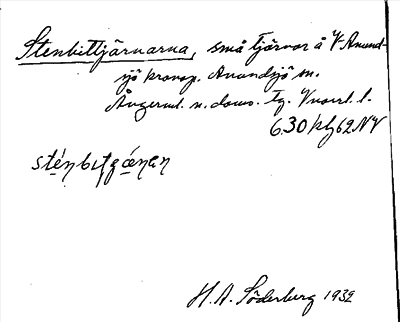 Stenbittjärnarna, små tjärnar å V-Anund-
sjö kronop. Anundsjö sn.
Ångerml. n. doms. tg. Vnorrl. l.
6.30 kl 62 NV
sténbɩtʒǽṇaṇ
H. A. Söderberg 1932